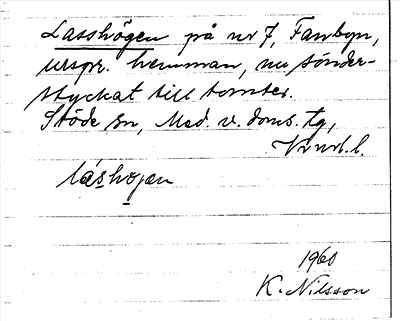 Lasshögen på nr 7, Fanbyn,
urspr. hemman, nu sönder-
styckat till tomter.
Stöde sn, Med. v. doms. tg,
Vnrl. l.
låshögen
1960
K. Nilsson